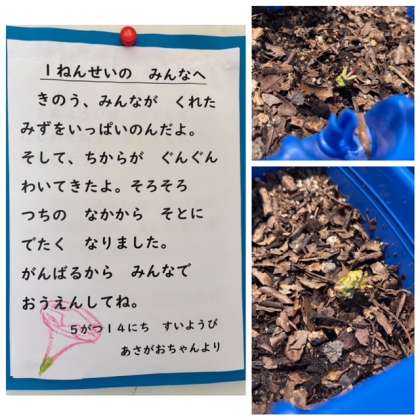 １ねんせいの　みんなへ
きのう、みんなが　くれた
みずをいっぱいのんだよ。
そして、ちからが　ぐんぐん
わいてきたよ。そろそろ
つちの　なかから　そとに
でたく　なりました。
がんばるから　みんなで
おうえんしてね。
５がつ１４にち　すいようび
あさがおちゃんより